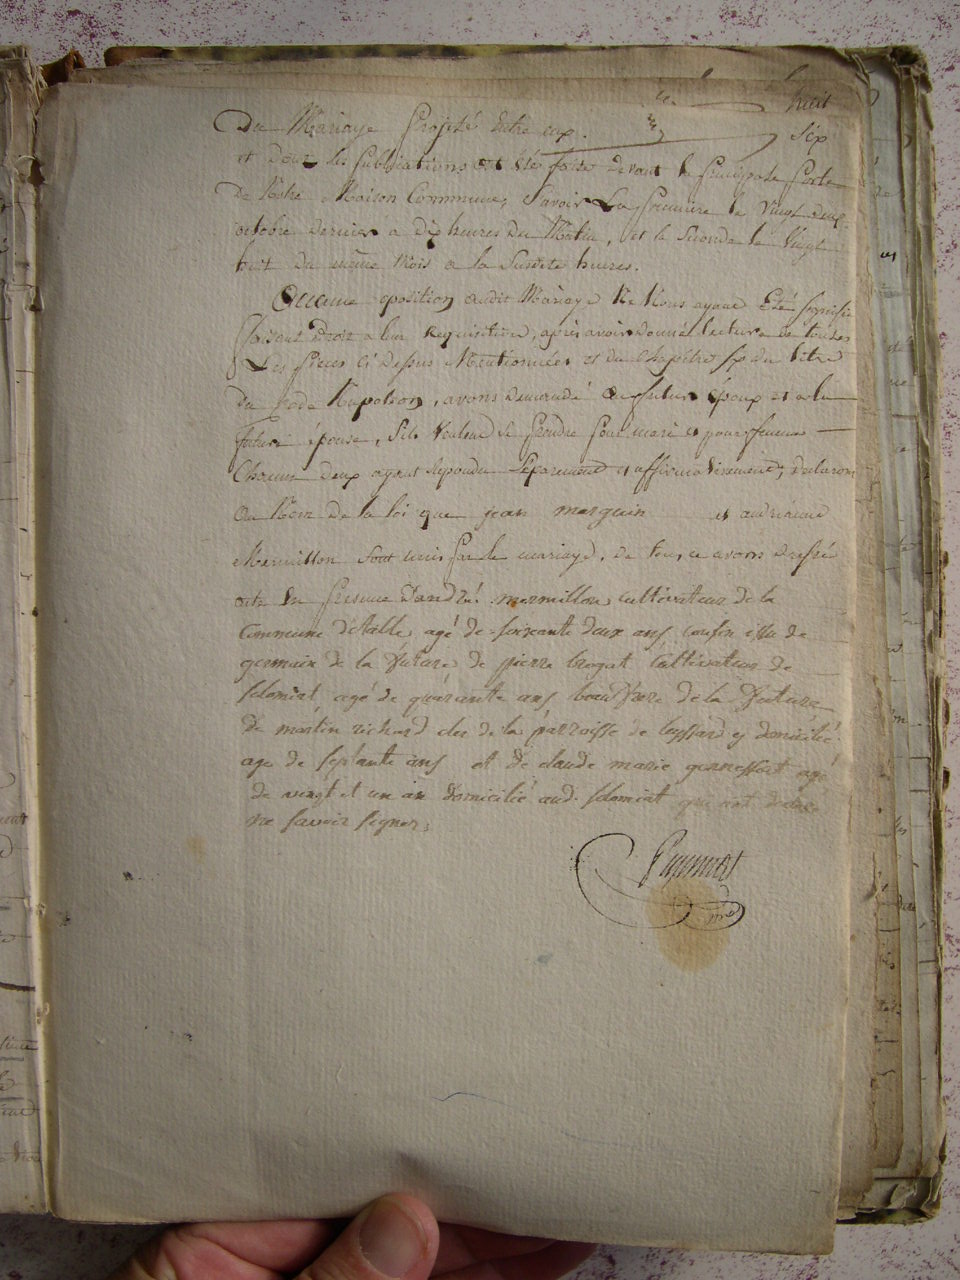 huit
Du Mariage projeté entre eux. six
et dont les publications ont été faite devant la principale porte
De Notre Maison Commune, Savoir La premiere le vingt deux
octobre dernier a dix heures du Matin, et la seconde le vingt
huit du même Mois a la Susdite heures.
Aucune oposition audit Mariage Ne Nous ayant Eté signifié
faisant Droit a leur Requisition, après avoir donné lecture de toutes
Les pieces ci Dessus Mentionnées et du chapitre six du titre
du code Napoleon, avons demandé au futur époux et a la
future épouse, S'ils veulent se prendre pour mari et pour femme
Chacun deux ayant repondu separement et affirmativement, declarons
au Nom de la loi que jean merguin et andréanne
Mermillon Sont unis par le mariage, de tou, ce avons dressé
acte En presence d'andré mermillon cultivateur de la
Commune d'etable agé de soixante deux ans cousin issu de
germain de la future de pierre brogat cultivateur de
solomiat agé de quarante ans beau frere de la future
de martin richard cler de la parroisse de leyssard y domicilié
age de septante ans et de claude marie gennessort agé
de vingt et un an domicilié aud. solomiat qui ont declaré
ne savoir signer,